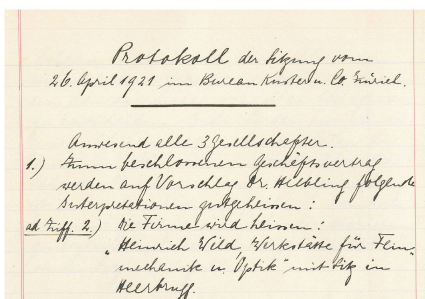 Protokoll der Sitzung vom
26. April 1921 im Bureau Kuster u. Co. Zürich.
Anwesend alle 3 Gesellschafter.
1.) Zum beschlossenen Geschäftsvertrag
werden auf Vorschlag Dr. Helbling folgende
Interpretationen gutgeheissen:
ad Ziff. 2.) Die Firma wird heissen:
„Heinrich Wild, Werkstätte für Fein-
mechanik u. Optik“ mit Sitz in
Heerbrugg.